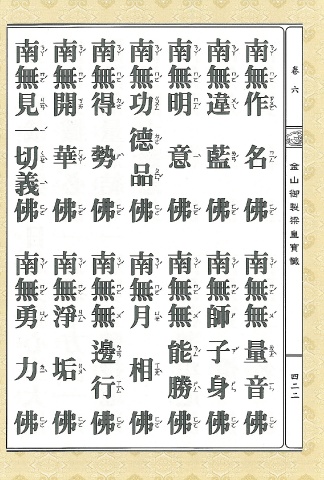 卷六
金山御製梁皇寶懺
四二二
南無作名佛
南無無量音佛
南無違藍佛
南無師子身佛
南無明意佛
南無無能勝佛
南無功德品佛
南無月相佛
南無得勢佛
南無無邊行佛
南無開華佛
南無淨垢佛
南無見一切義佛
南無勇力佛